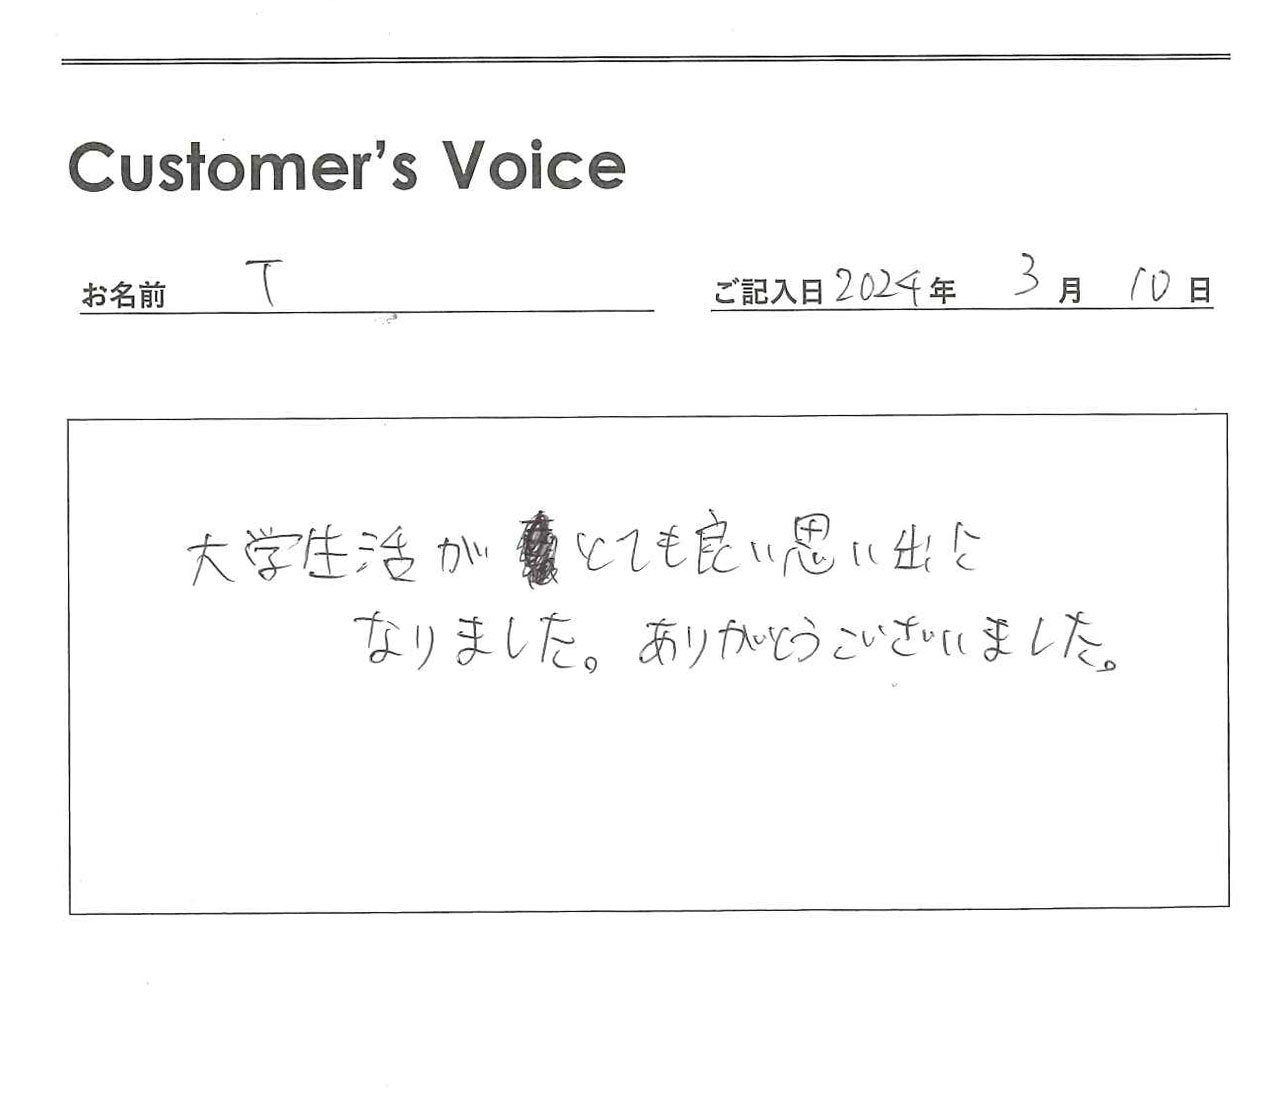 Customer's Voice
お名前 T
ご記入日 2024年 3月 10日
大学生活が とても良い思い出に
なりました。ありがとうございました。